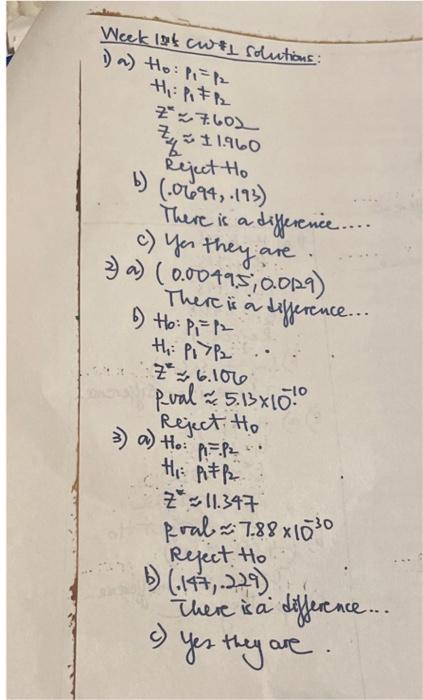 Week 15+6 CW #1 Solutions:
1) a) H₀: p₁ = p₂
H₁: p₁ ≠ p₂
z* ≈ 7.602
z α/2 ≈ ±1.960
Reject H₀
b) (.0694, .193)
There is a difference....
c) Yes they are.
2) a) (0.00495, 0.0129)
There is a difference...
b) H₀: p₁ = p₂
H₁: p₁ > p₂
z* ≈ 6.106
p val ≈ 5.13 × 10⁻¹⁰
Reject H₀
3) a) H₀: p₁ = p₂
H₁: p₁ ≠ p₂
z* ≈ 11.347
p val ≈ 7.88 × 10⁻³⁰
Reject H₀
b) (.147, .229)
There is a difference...
c) Yes they are.